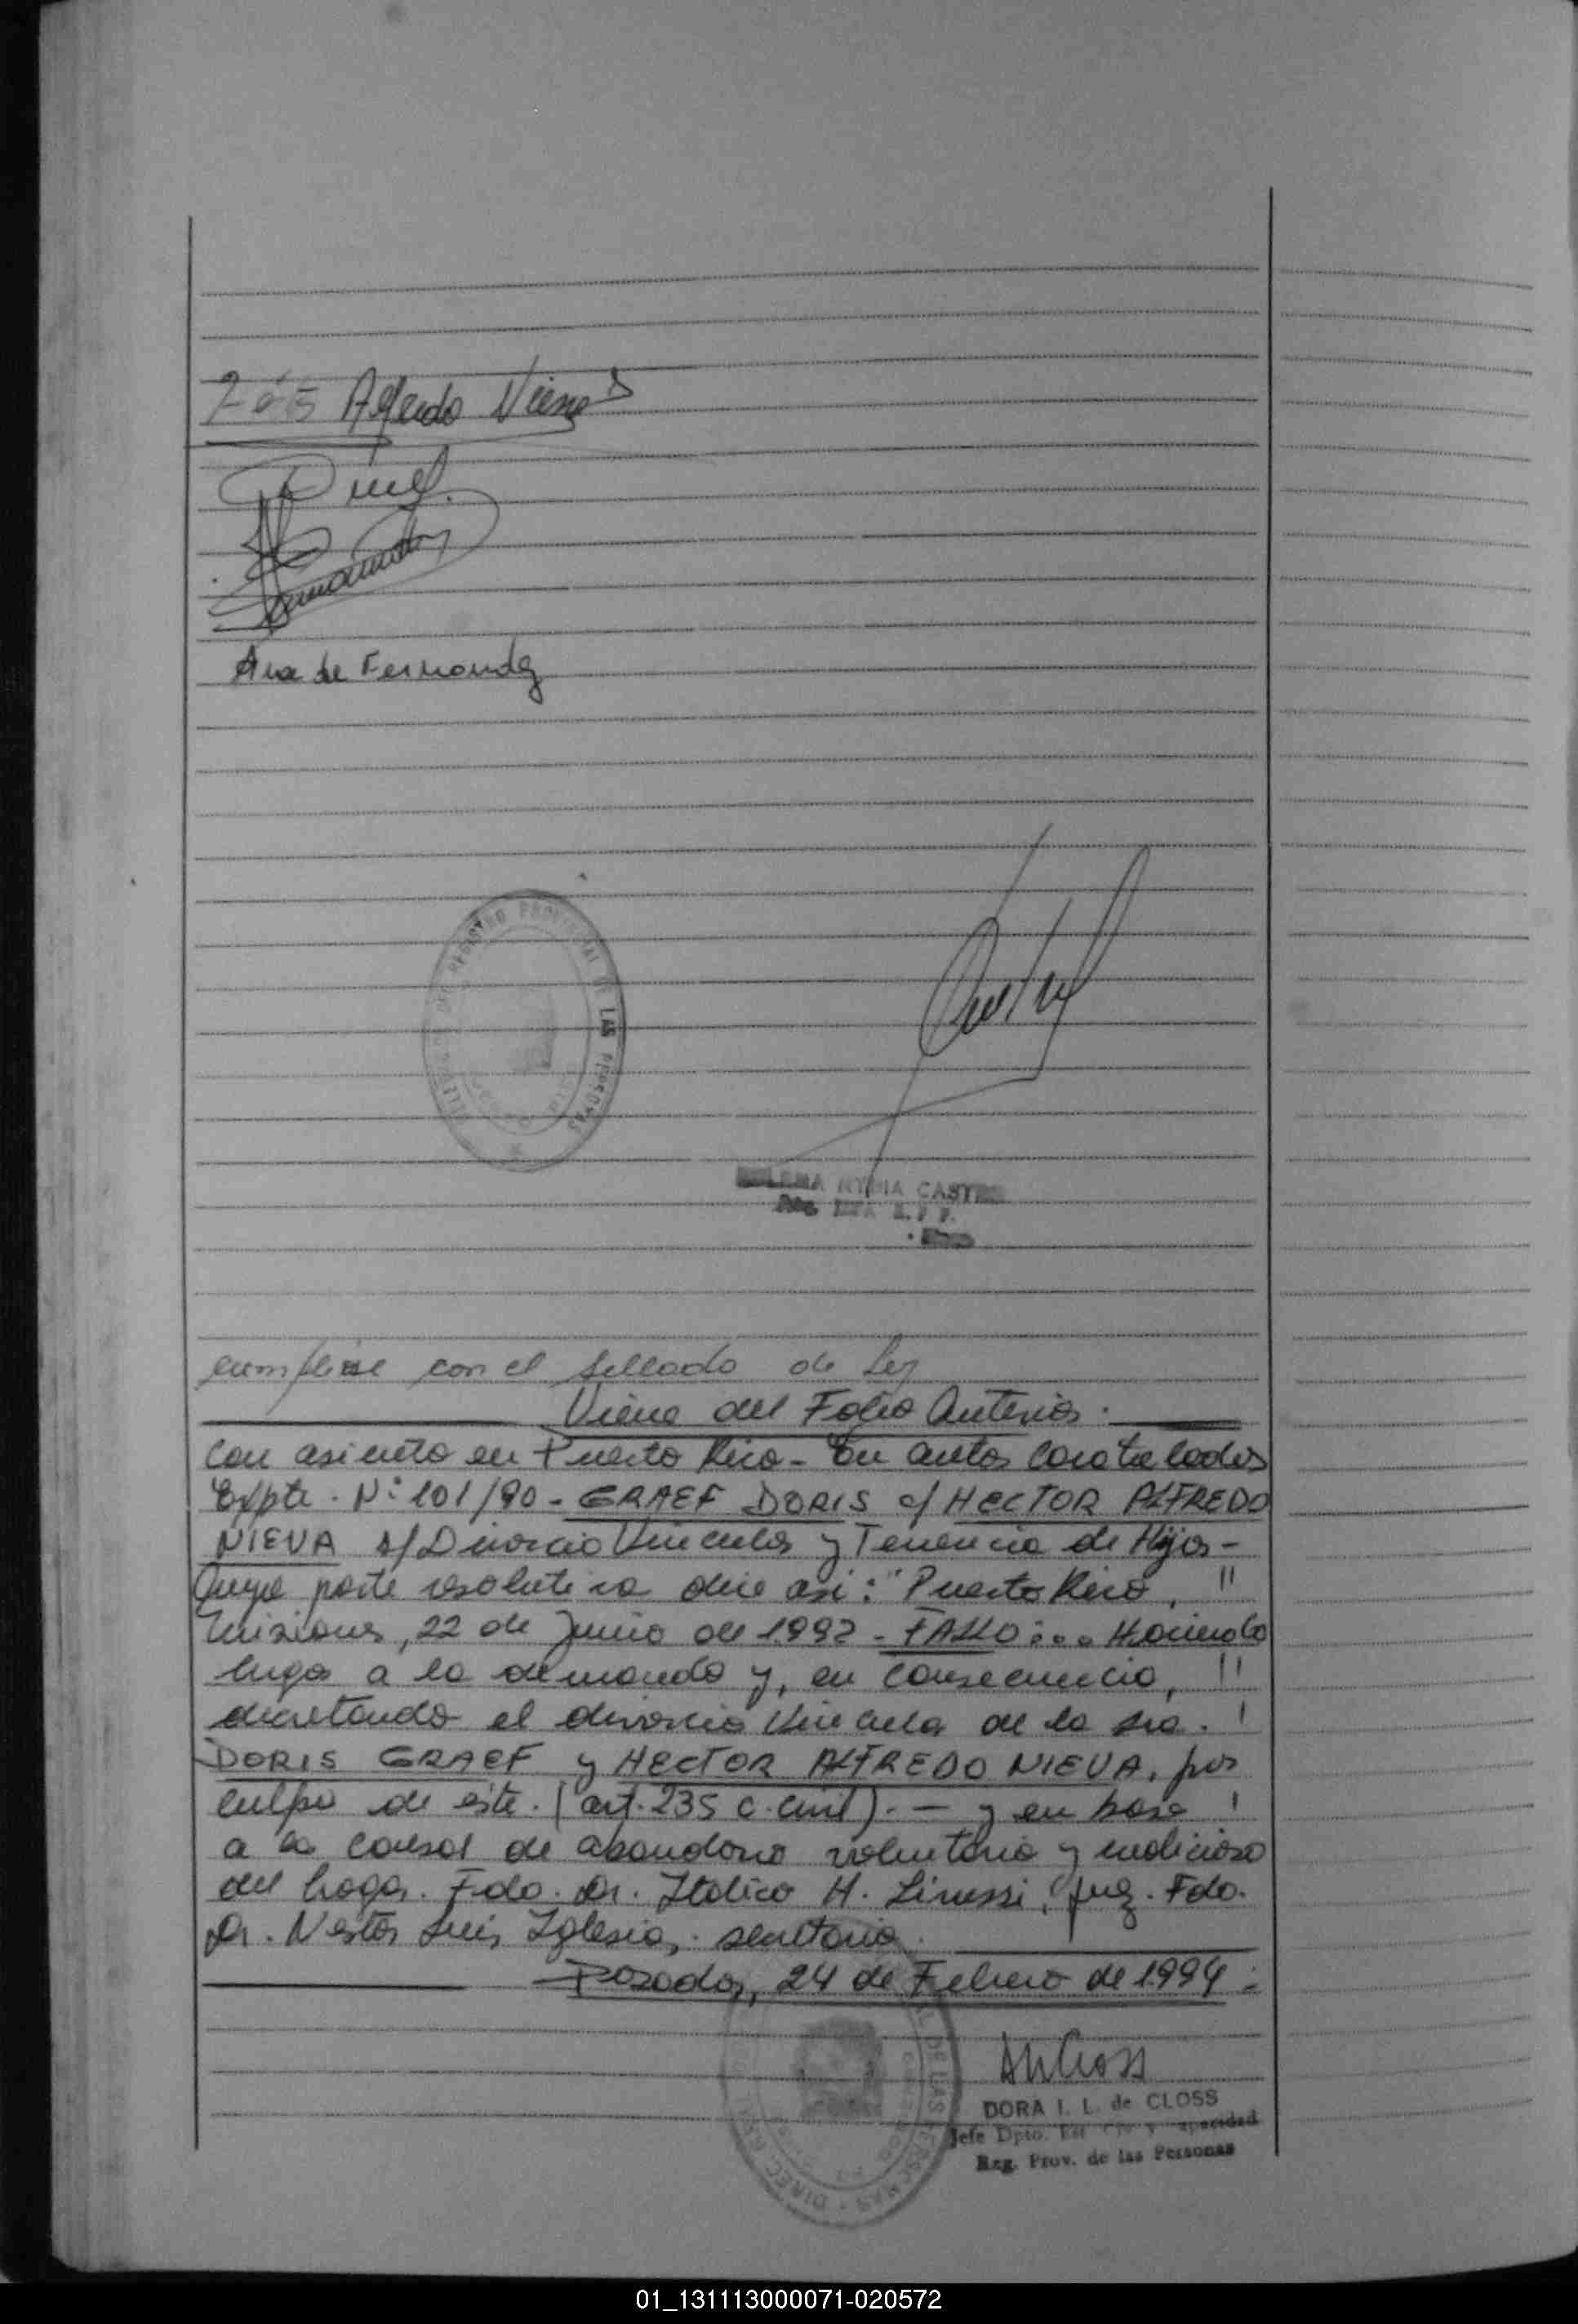 Alfredo
Ana de Fernandez
REGISTRO PROVINCIAL DE LAS PERSONAS
NIDIA CASTRO
cumplese con el sellado de ley
Viene del Folio Anterior.
con asiento en Puerto Rico - En autos caratulados
Expte. Nº 101/90 - GRAEF DORIS c/ HECTOR ALFREDO
NIEVA s/ Divorcio Vincular y Tenencia de Hijos -
Cuya parte resolutiva dice asi: "Puerto Rico, "
Misiones, 22 de Junio de 1992 - FALLO: .. Haciendo
lugar a la demanda y, en consecuencia, !!
decretando el divorcio Vincular de la sra. !
DORIS GRAEF y HECTOR ALFREDO NIEVA, por
culpa de éste. (art. 235 c. civil). - y en base !
a la causal de abandono voluntario y malicioso
del hogar. Fdo. Dr. Italico H. Juez. Fdo.
Dr. Nestor Luis Iglesias, secretario.
Posadas, 24 de Febrero de 1994 -
DORA I. L. de CLOSS
Jefe Dpto. Est. Civ. y Capacidad
Reg. Prov. de las Personas
01_131113000071-020572